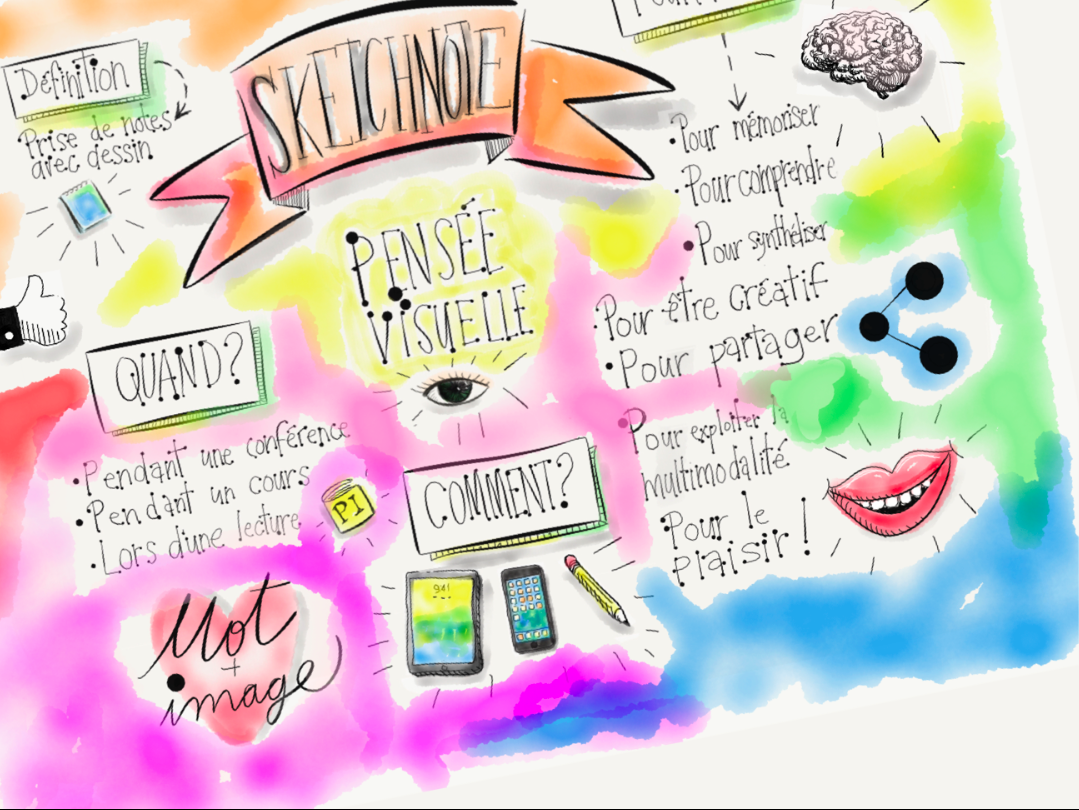 SKETCHNOTE
Définition
Prise de notes
avec dessin
PENSÉE
VISUELLE
QUAND?
• Pendant une conférence
• Pendant un cours
• Lors d'une lecture
PI
Mot
+
image
COMMENT?
941
• Pour mémoriser
• Pour comprendre
• Pour synthétiser
• Pour être créatif
• Pour partager
• Pour exploiter la
multimodalité
• Pour le
plaisir!